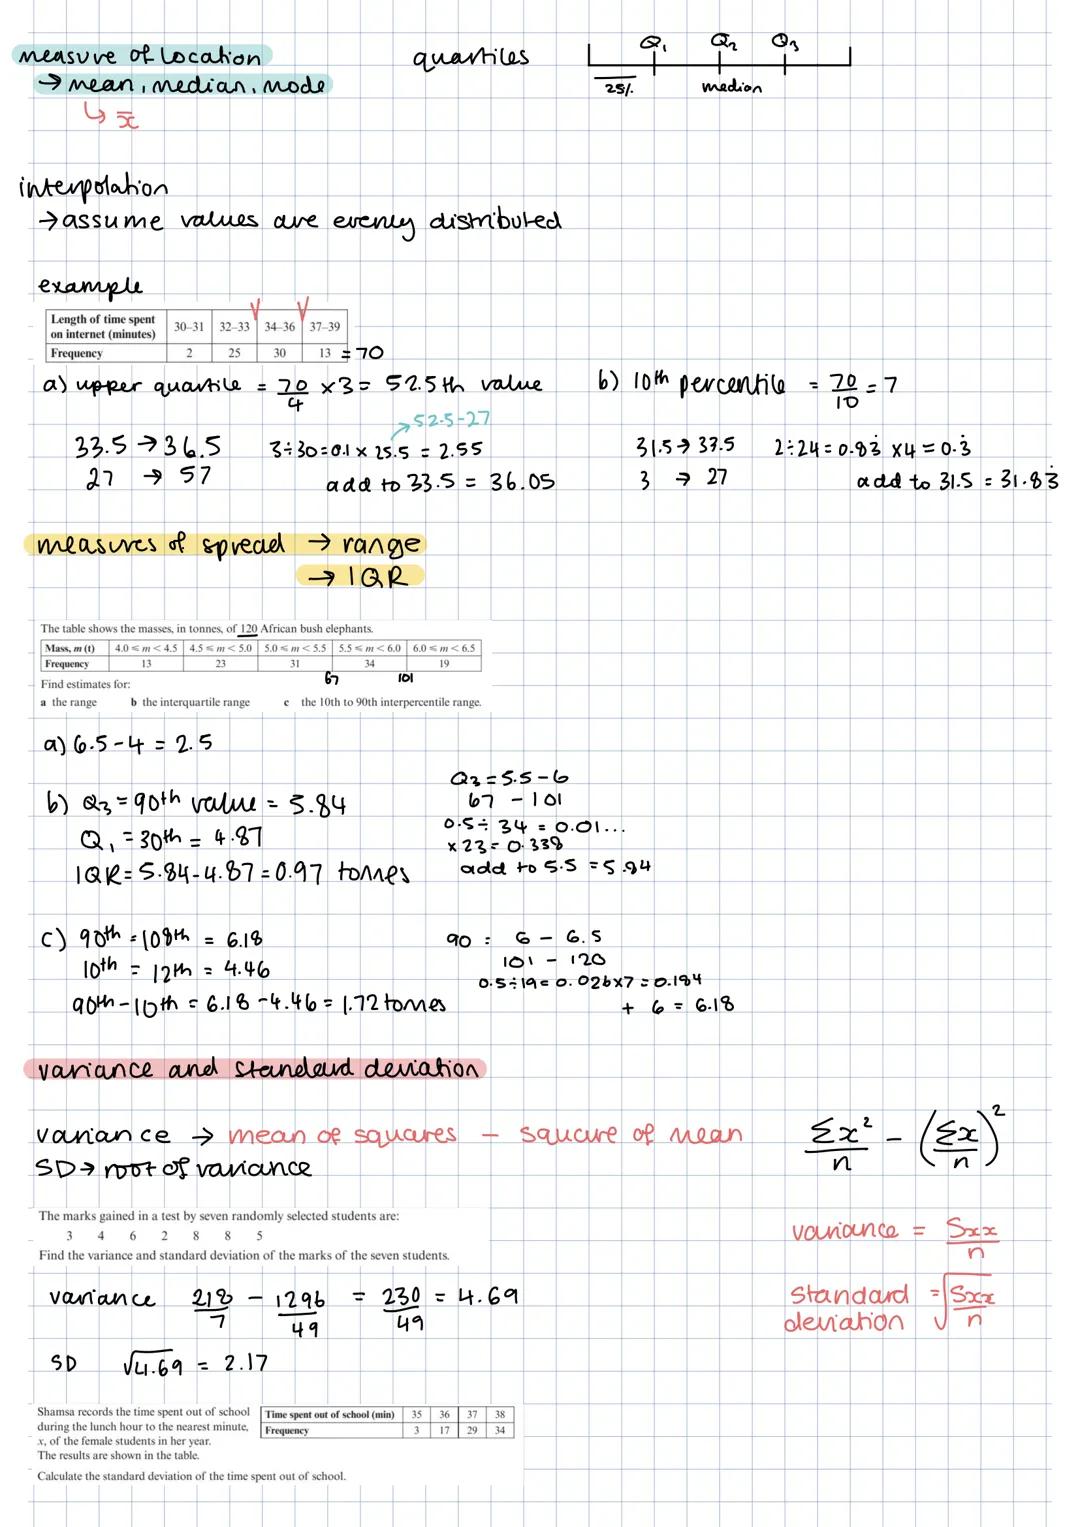 measure of Location
→ mean, median, mode
↳ x̄
quartiles
Q₁ Q₂ Q₃
25%. median
interpolation
→ assume values are evenly distributed
example
Length of time spent on internet (minutes) 30–31 32–33 34–36 37–39
Frequency 2 25 30 13 = 70
a) upper quartile = 70/4 × 3 = 52.5th value
52.5-27
33.5 → 36.5 3÷30=0.1 × 25.5 = 2.55
27 → 57 add to 33.5 = 36.05
b) 10th percentile = 70/10 = 7
31.5 → 33.5 2÷24 = 0.83̇ ×4 = 0.3̇
3 → 27 add to 31.5 = 31.83̇
measures of spread → range
→ IQR
The table shows the masses, in tonnes, of 120 African bush elephants.
Mass, m (t) 4.0 ⩽ m < 4.5 4.5 ⩽ m < 5.0 5.0 ⩽ m < 5.5 5.5 ⩽ m < 6.0 6.0 ⩽ m < 6.5
Frequency 13 23 31 34 19
67 101
Find estimates for:
a the range b the interquartile range c the 10th to 90th interpercentile range.
a) 6.5-4 = 2.5
b) Q₃ = 90th value = 5.84
Q₁ = 30th = 4.87
IQR = 5.84-4.87 = 0.97 tonnes
Q₃ = 5.5-6
67 - 101
0.5÷ 34 = 0.01...
×23 = 0.338
add to 5.5 = 5.84
c) 90th = 108th = 6.18
10th = 12th = 4.46
90th-10th = 6.18-4.46 = 1.72 tonnes
90 : 6 - 6.5
101 - 120
0.5÷19 = 0.026×7 = 0.184
+ 6 = 6.18
variance and standard deviation
variance → mean of squares - square of mean
SD → root of variance
Σx²/n - (Σx/n)²
The marks gained in a test by seven randomly selected students are:
3 4 6 2 8 8 5
Find the variance and standard deviation of the marks of the seven students.
variance = Sxx/n
standard deviation = √Sxx/n
variance 218/7 - 1296/49 = 230/49 = 4.69
SD √4.69 = 2.17
Shamsa records the time spent out of school
during the lunch hour to the nearest minute,
x, of the female students in her year.
The results are shown in the table.
Time spent out of school (min) 35 36 37 38
Frequency 3 17 29 34
Calculate the standard deviation of the time spent out of school.